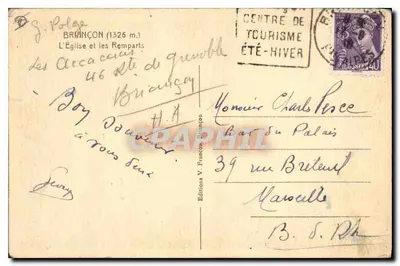 G. Polge
BRIANÇON (1326 m.)
L'Eglise et les Remparts
Les Accacias
46 Rte de grenoble
Briançon
H A
Bon Souvenir
à vous deux
CENTRE DE
TOURISME
ÉTÉ-HIVER
Monsieur Charles Pesce
Bar du Palais
39 rue Breteuil
Marseille
B. d. Rh
Editions V. Francou, Briançon
CPARHIL